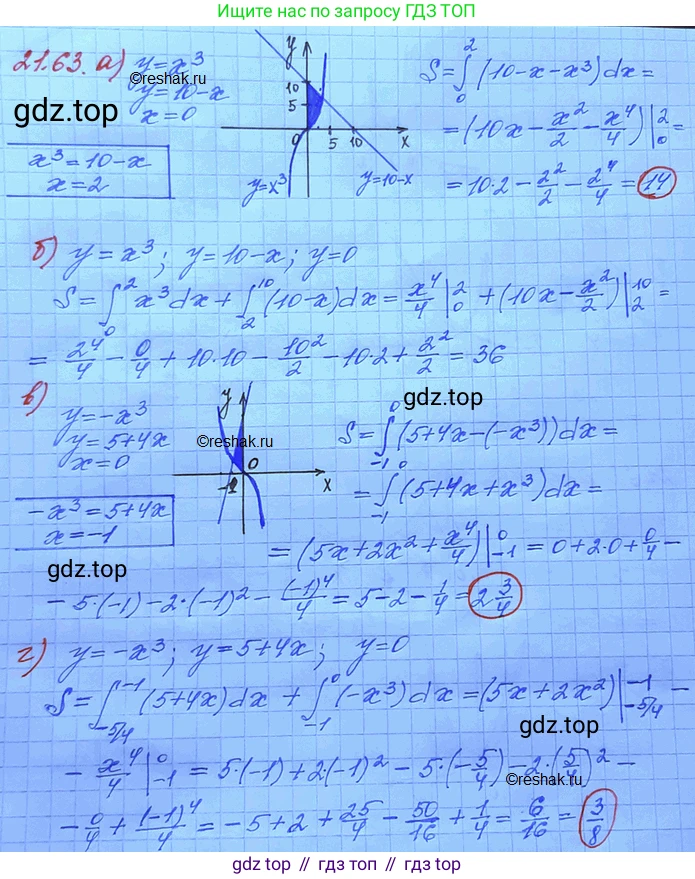 Ищите нас по запросу ГДЗ ТОП
21.63. а) y=x³
y=10-x
x=0
©reshak.ru
gdz.top
x³=10-x
x=2
y
10
5
0
5 10 x
y=x³
y=10-x
S=∫₀² (10-x-x³)dx=
=(10x-x²/2-x⁴/4)|₀²=
=10·2-2²/2-2⁴/4=14
б) y=x³; y=10-x; y=0
S=∫₀² x³dx+∫₂¹⁰(10-x)dx=x⁴/4|₀²+(10x-x²/2)|₂¹⁰=
=2⁴/4-0/4+10·10-10²/2-10·2+2²/2=36
в) y=-x³
y=5+4x
x=0
-x³=5+4x
x=-1
y
©reshak.ru
0
-1
x
gdz.top
S=∫₋₁⁰(5+4x-(-x³))dx=
=∫₋₁⁰(5+4x+x³)dx=
=(5x+2x²+x⁴/4)|₋₁⁰=0+2·0+0/4-
gdz.top
-5·(-1)-2·(-1)²-(-1)⁴/4=5-2-1/4=2 3/4
г) y=-x³; y=5+4x; y=0
S=∫₋₅/₄⁻¹(5+4x)dx+∫₋₁⁰(-x³)dx=(5x+2x²)|₋₅/₄⁻¹-
gdz.top
-x⁴/4|₋₁⁰=5·(-1)+2·(-1)²-5·(-5/4)-2·(5/4)²-
©reshak.ru
-0/4+(-1)⁴/4=-5+2+25/4-50/16+1/4=6/16=3/8
gdz.top // гдз топ // gdz.top